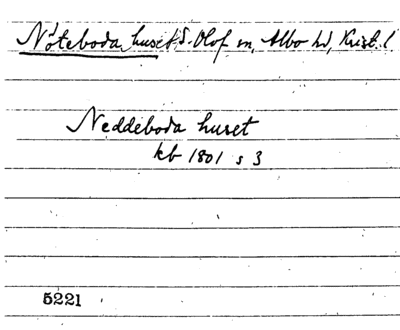 Nöteboda huset S. Olof sn, Albo hd, Krist. l.
Neddeboda huset
kb 1801 s 3
5221